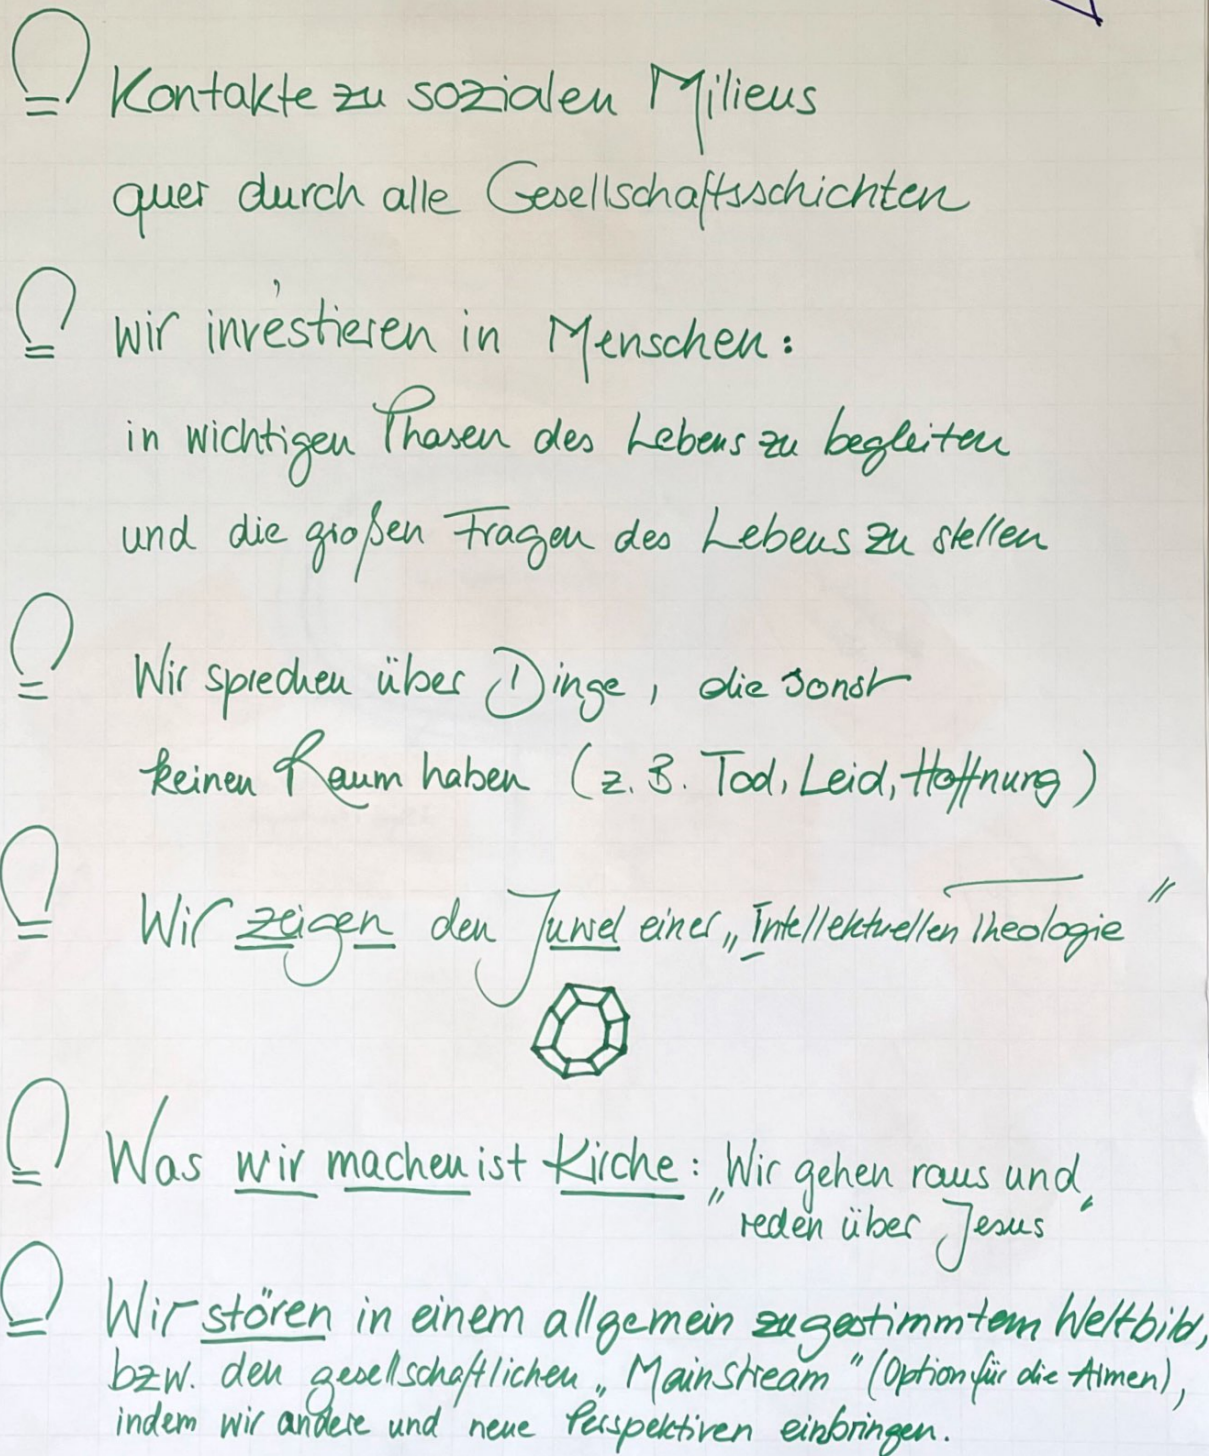 Kontakte zu sozialen Milieus
quer durch alle Gesellschaftsschichten
wir investieren in Menschen:
in wichtigen Phasen des Lebens zu begleiten
und die großen Fragen des Lebens zu stellen
Wir sprechen über Dinge, die sonst
keinen Raum haben (z. B. Tod, Leid, Hoffnung)
Wir zeigen den Juwel einer „Intellektuellen Theologie"
Was wir machen ist Kirche: „Wir gehen raus und
reden über Jesus"
Wir stören in einem allgemein zugestimmtem Weltbild,
bzw. den gesellschaftlichen „Mainstream" (Option für die Armen),
indem wir andere und neue Perspektiven einbringen.